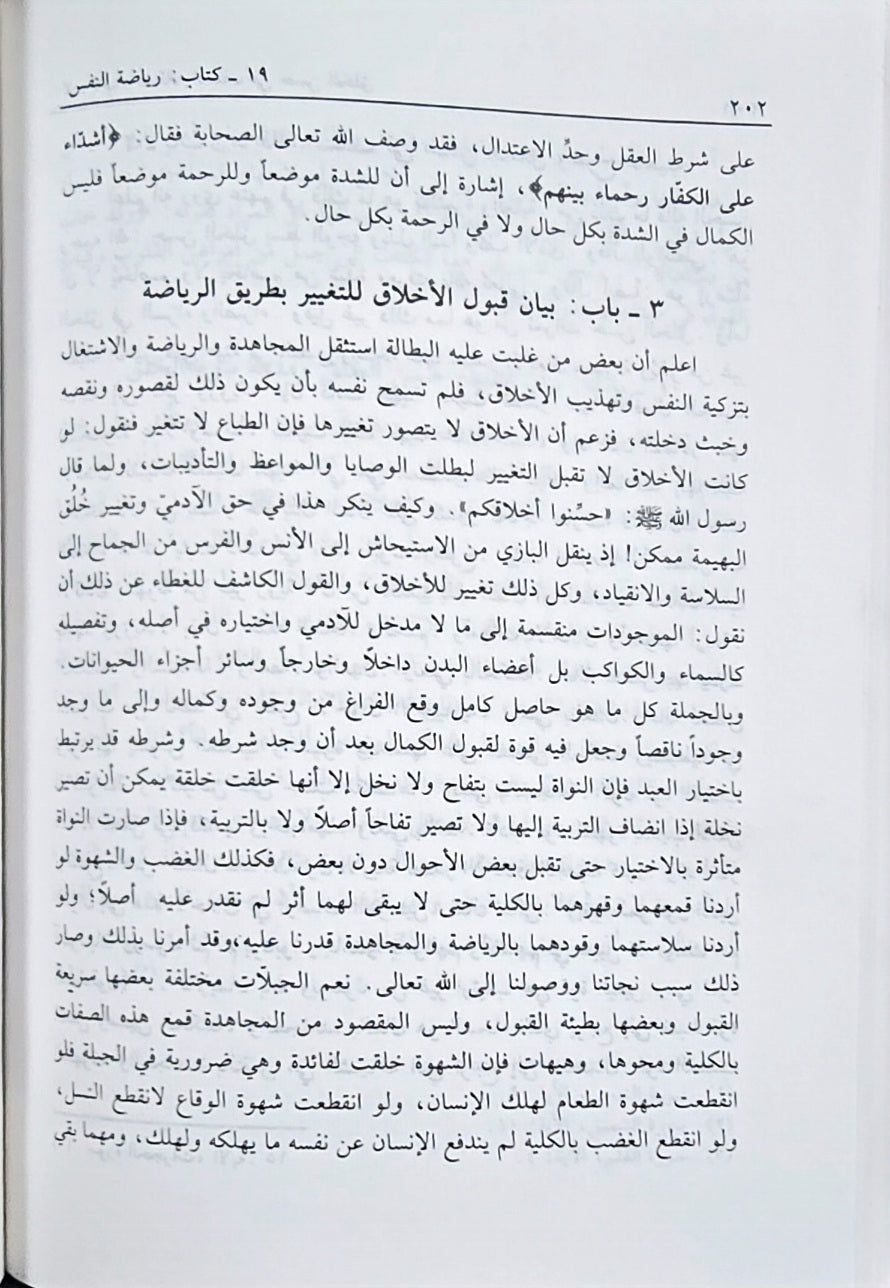 ١٩ ـ كتاب: رياضة النفس
٢٠٢
على شرط العقل وحدِّ الاعتدال، فقد وصف الله تعالى الصحابة فقال: ﴿أشدّاء
على الكفّار رحماء بينهم﴾، إشارة إلى أن للشدة موضعاً وللرحمة موضعاً فليس
الكمال في الشدة بكل حال ولا في الرحمة بكل حال.
٣ ـ باب: بيان قبول الأخلاق للتغيير بطريق الرياضة
اعلم أن بعض من غلبت عليه البطالة استثقل المجاهدة والرياضة والاشتغال
بتزكية النفس وتهذيب الأخلاق، فلم تسمح نفسه بأن يكون ذلك لقصوره ونقصه
وخبث دخلته، فزعم أن الأخلاق لا يتصور تغييرها فإن الطباع لا تتغير فنقول: لو
كانت الأخلاق لا تقبل التغيير لبطلت الوصايا والمواعظ والتأديبات، ولما قال
رسول الله ﷺ: «حسِّنوا أخلاقكم». وكيف ينكر هذا في حق الآدميّ وتغيير خُلُق
البهيمة ممكن! إذ ينقل البازي من الاستيحاش إلى الأنس والفرس من الجماح إلى
السلاسة والانقياد، وكل ذلك تغيير للأخلاق، والقول الكاشف للغطاء عن ذلك أن
نقول: الموجودات منقسمة إلى ما لا مدخل للآدمي واختياره في أصله، وتفصيله
كالسماء والكواكب بل أعضاء البدن داخلاً وخارجاً وسائر أجزاء الحيوانات.
وبالجملة كل ما هو حاصل كامل وقع الفراغ من وجوده وكماله وإلى ما وجد
وجوداً ناقصاً وجعل فيه قوة لقبول الكمال بعد أن وجد شرطه. وشرطه قد يرتبط
باختيار العبد فإن النواة ليست بتفاح ولا نخل إلا أنها خلقت خلقة يمكن أن تصير
نخلة إذا انضاف التربية إليها ولا تصير تفاحاً أصلاً ولا بالتربية، فإذا صارت النواة
متأثرة بالاختيار حتى تقبل بعض الأحوال دون بعض، فكذلك الغضب والشهوة لو
أردنا قمعهما وقهرهما بالكلية حتى لا يبقى لهما أثر لم نقدر عليه أصلاً؛ ولو
أردنا سلاستهما وقودهما بالرياضة والمجاهدة قدرنا عليه،وقد أمرنا بذلك وصار
ذلك سبب نجاتنا ووصولنا إلى الله تعالى. نعم الجبلّات مختلفة بعضها سريعة
القبول وبعضها بطيئة القبول، وليس المقصود من المجاهدة قمع هذه الصفات
بالكلية ومحوها، وهيهات فإن الشهوة خلقت لفائدة وهي ضرورية في الجبلة فلو
انقطعت شهوة الطعام لهلك الإنسان، ولو انقطعت شهوة الوقاع لانقطع النسل،
ولو انقطع الغضب بالكلية لم يندفع الإنسان عن نفسه ما يهلكه ولهلك، ومهما بقي